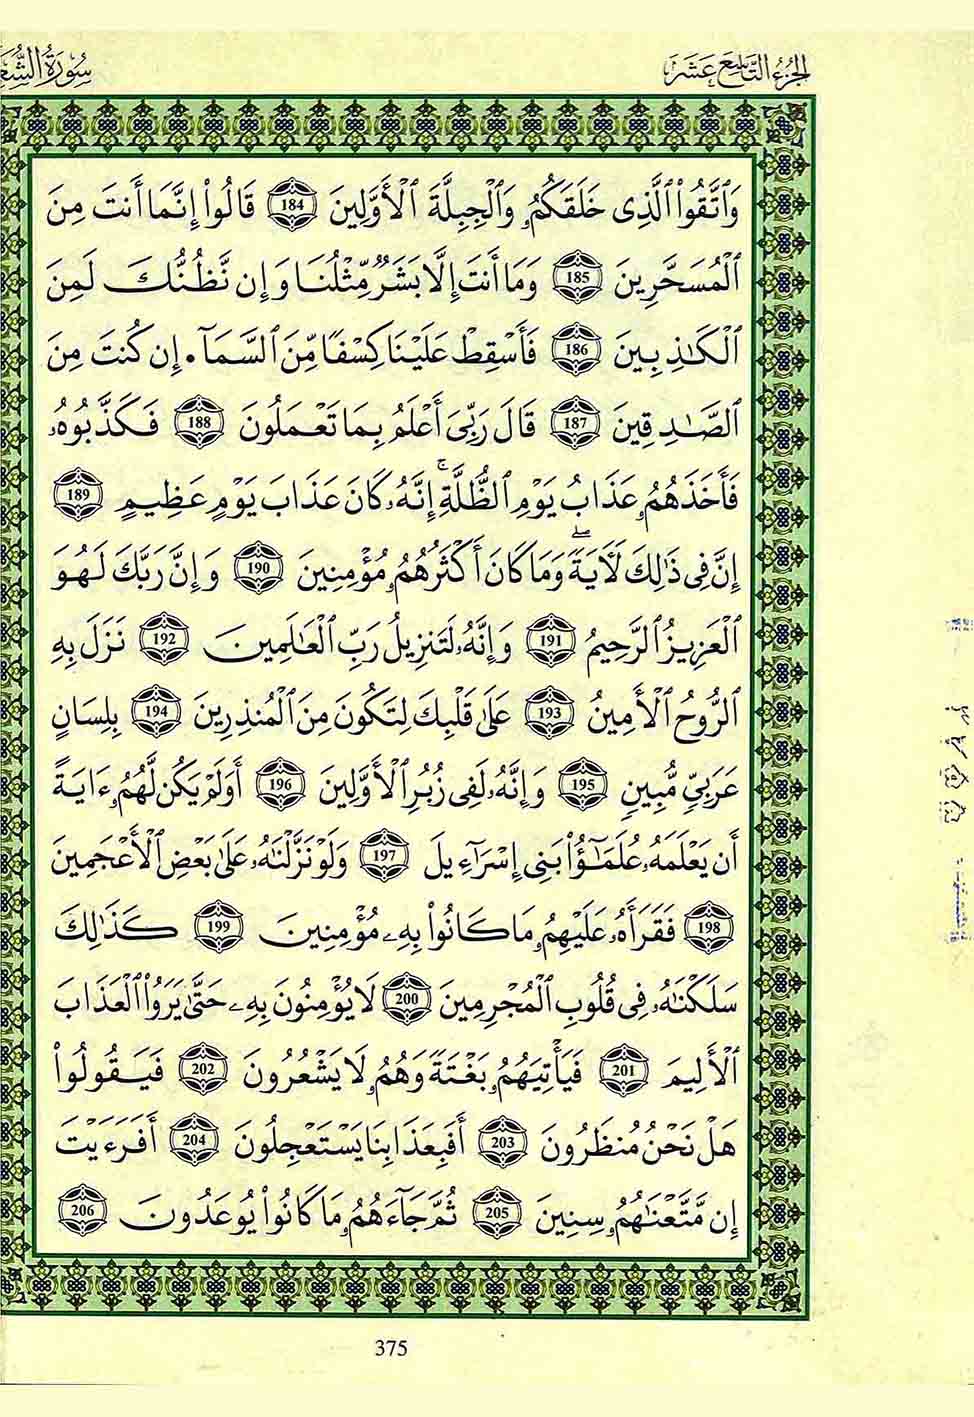 الجزء التاسع عشر
سورة الشع
وَاَتَّقُواْ اُلَّذِى خَلَقَكُمُۥ وَالْجِبِلَّةَ اَلْأَوَّلِينَ 184 قَالُواْ إِنَّمَا أَنتَ مِنَ
اَلْمُسَحَّرِينَ 185 وَمَا أَنتَ إِلَّا بَشَرٌ مِّثْلُنَا وَإِن نَّظُنُّكَ لَمِنَ
اَلْكَٰذِبِينَ 186 فَأَسْقِطْ عَلَيْنَا كِسْفًا مِّنَ اَلسَّمَآءِ إِن كُنتَ مِنَ
اَلصَّٰدِقِينَ 187 قَالَ رَبِّىَ أَعْلَمُ بِمَا تَعْمَلُونَ 188 فَكَذَّبُوهُۥ
فَأَخَذَهُمُۥ عَذَابُ يَوْمِ اِلظُّلَّةِۚ إِنَّهُۥ كَانَ عَذَابَ يَوْمٍ عَظِيمٍ 189
إِنَّ فِى ذَٰلِكَ لَأَيَةًۖ وَمَا كَانَ أَكْثَرُهُمُۥ مُؤْمِنِينَ 190 وَإِنَّ رَبَّكَ لَهُوَ
اَلْعَزِيزُ اُلرَّحِيمُ 191 وَإِنَّهُۥ لَتَنزِيلُ رَبِّ اِلْعَٰلَمِينَ 192 نَزَلَ بِهِ
اِلرُّوحُ اُلْأَمِينُ 193 عَلَىٰ قَلْبِكَ لِتَكُونَ مِنَ اَلْمُنذِرِينَ 194 بِلِسَانٍ
عَرَبِىٍّ مُّبِينٍ 195 وَإِنَّهُۥ لَفِى زُبُرِ اِلْأَوَّلِينَ 196 أَوَلَمْ يَكُن لَّهُمُۥ ءَايَةً
أَن يَعْلَمَهُۥ عُلَمَٰٓؤُاْ بَنِى إِسْرَآءِيلَ 197 وَلَوْ نَزَّلْنَٰهُۥ عَلَىٰ بَعْضِ اِلْأَعْجَمِينَ
198 فَقَرَأَهُۥ عَلَيْهِمُۥ مَا كَانُواْ بِهِۦ مُؤْمِنِينَ 199 كَذَٰلِكَ
سَلَكْنَٰهُۥ فِى قُلُوبِ اِلْمُجْرِمِينَ 200 لَا يُؤْمِنُونَ بِهِۦ حَتَّىٰ يَرَوُاْ اُلْعَذَابَ
اَلْأَلِيمَ 201 فَيَأْتِيَهُمُۥ بَغْتَةً وَهُمُۥ لَا يَشْعُرُونَ 202 فَيَقُولُواْ
هَلْ نَحْنُ مُنظَرُونَ 203 أَفَبِعَذَابِنَا يَسْتَعْجِلُونَ 204 أَفَرَءَيْتَ
إِن مَّتَّعْنَٰهُمُۥ سِنِينَ 205 ثُمَّ جَآءَهُمُۥ مَا كَانُواْ يُوعَدُونَ 206
375